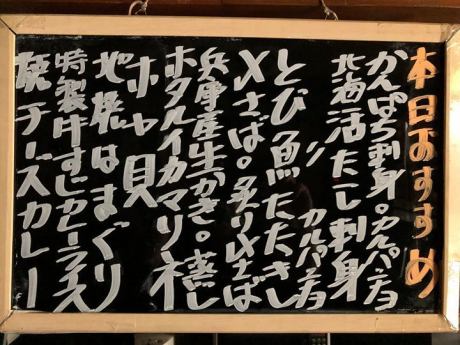 本日おすすめ
かんぱち刺身。カルパッチョ
北海活たこ刺身
〃 カルパッチョ
とび魚たたき
〆さば。炙り〆さば
兵庫産生かき。蒸し
ホタルイカマリネ
ホヤ貝
地焼はまぐり
特製牛すじカレーライス
焼チーズカレー